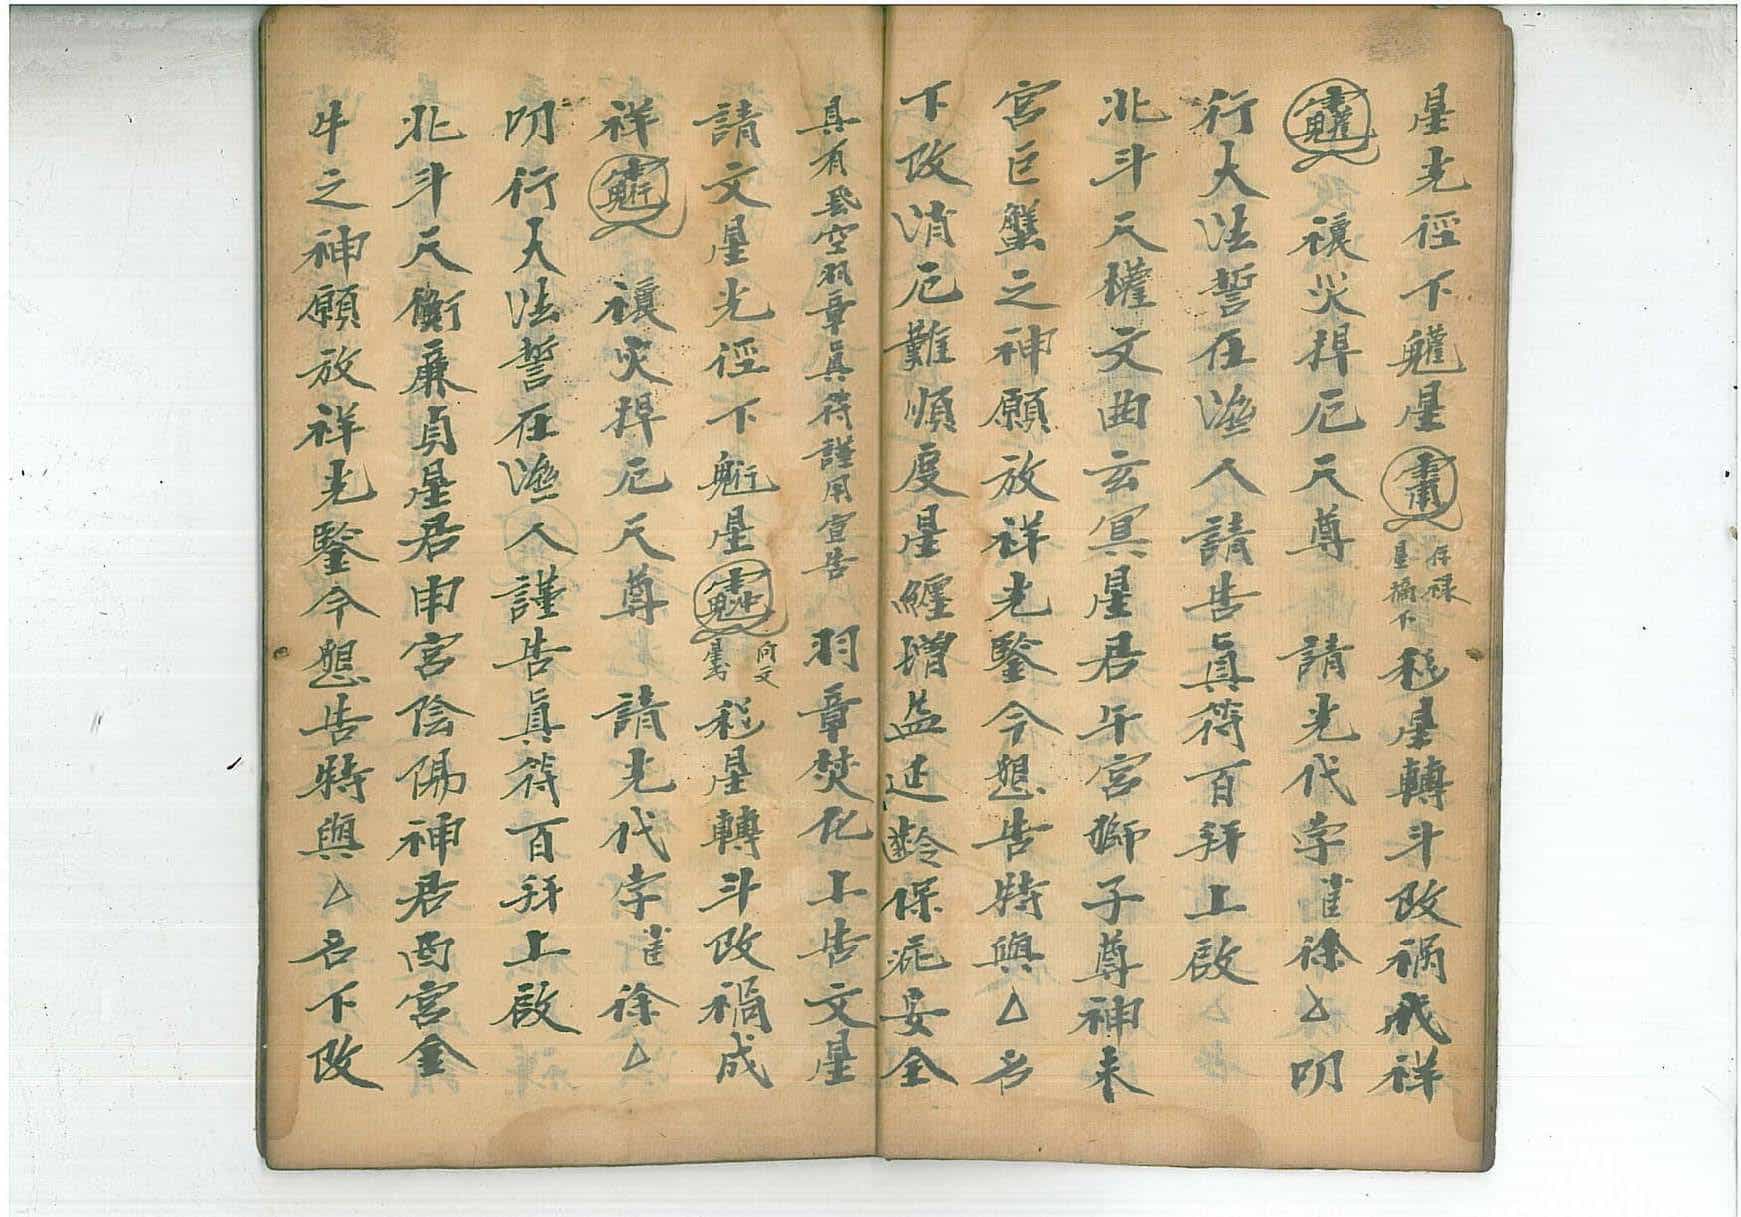 星光徑下𩵄星 存祿星橋下 移星轉斗改禍成祥
禳災捍厄天尊 請光代字雀徐△叨
行大法誓在濟人請告眞符百拜上啟
北斗天權文曲玄冥星君午宮獅子尊神未
宮巨蟹之神願放祥光鑒今懇告特與△名
下改消厄難順度星纏增益延齡保䘏妥全
具有飛空羽章眞符謹用宣告 羽章焚化上告文星
請文星光徑下魁星 向文星 移星轉斗改禍成
祥 禳災捍厄天尊 請光代字雀徐△
叨行大法誓在濟人謹告眞符百拜上啟
北斗天衡廉貞星君申宮陰陽神君酉宮金
牛之神願放祥光鑒今懇告特與△名下改